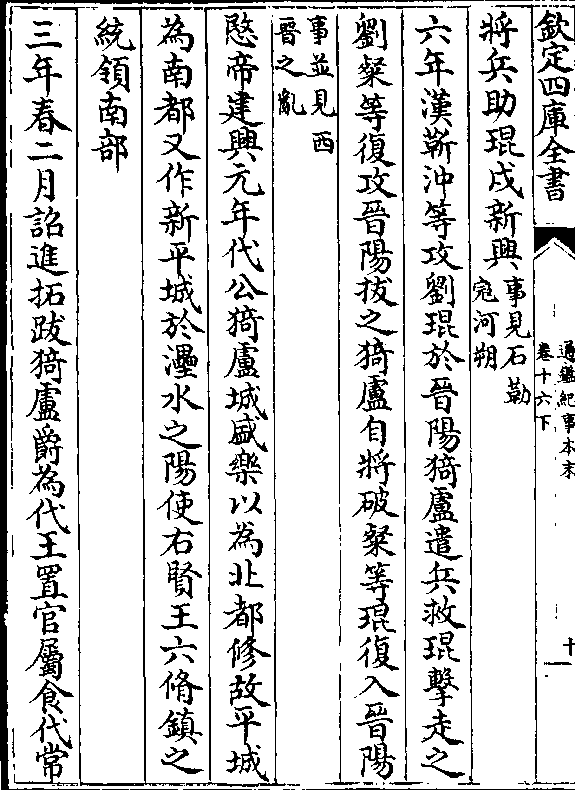 欽定四庫全書
通鑑紀事本末
卷十六下
十
將兵助琨戍新興事見石勒
宼河朔
六年漢靳沖等攻劉琨於晉陽猗盧遣兵救琨擊走之
劉粲等復攻晉陽拔之猗盧自將破粲等琨復入晉陽
事並見西
晉之亂
愍帝建興元年代公猗盧城盛樂以為北都修故平城
為南都又作新平城於㶟水之陽使右賢王六脩鎮之
統領南部
三年春二月詔進拓跋猗盧爵為代王置官屬食代常